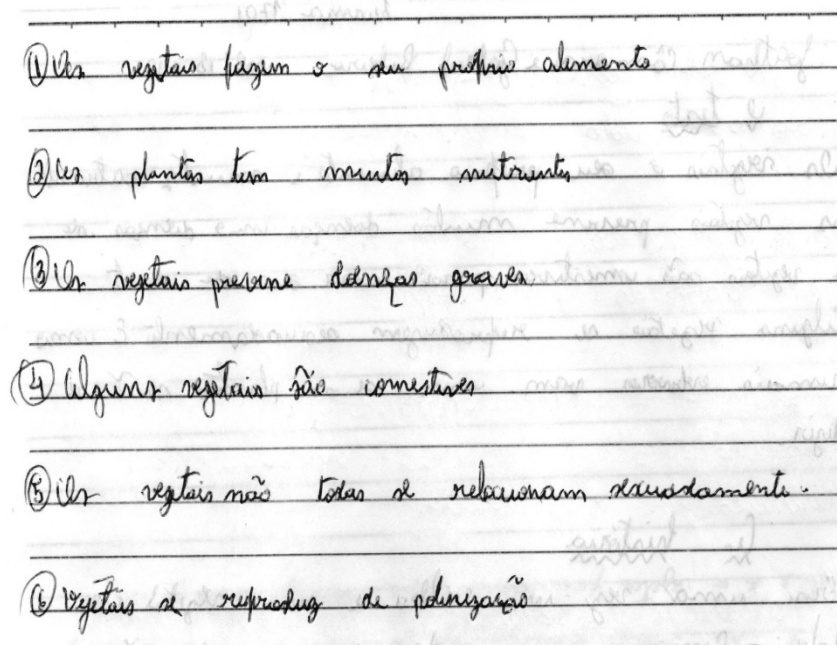 ① Os vegetais fazem o seu próprio alimento
② as plantas tem muitos nutrientes
③ Os vejetais previne doenças graves.
④ Alguns vejetais são comestives
⑤ Os vegtais não todas se relacionam sexuadamente.
⑥ Vejetais se reproduz de polinização